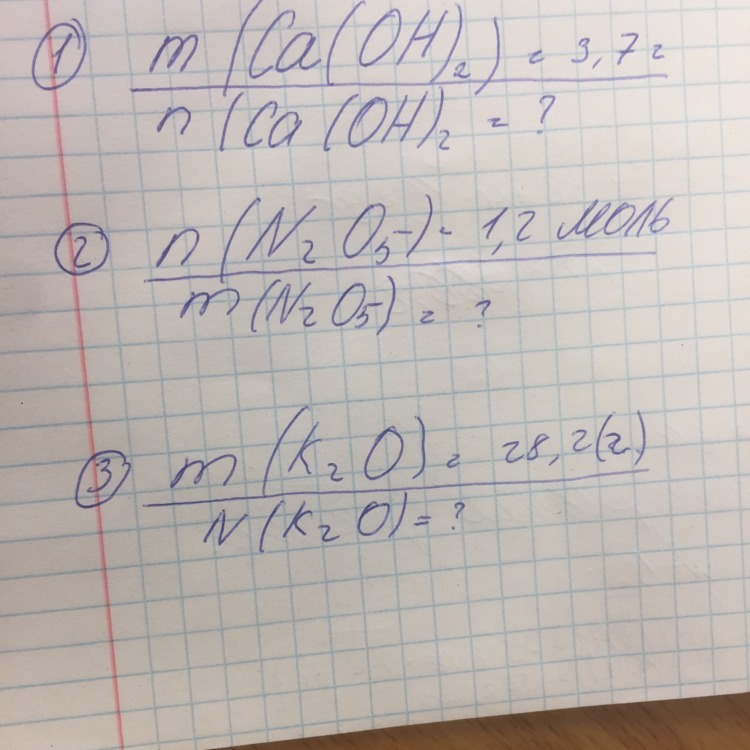 ① m (Ca(OH)₂) = 3,7 г
n (Ca (OH)₂ = ?
② n (N₂ O₅) - 1,2 моль
m (N₂ O₅) = ?
③ m (K₂ O) = 28,2 (г.)
N (K₂ O) = ?